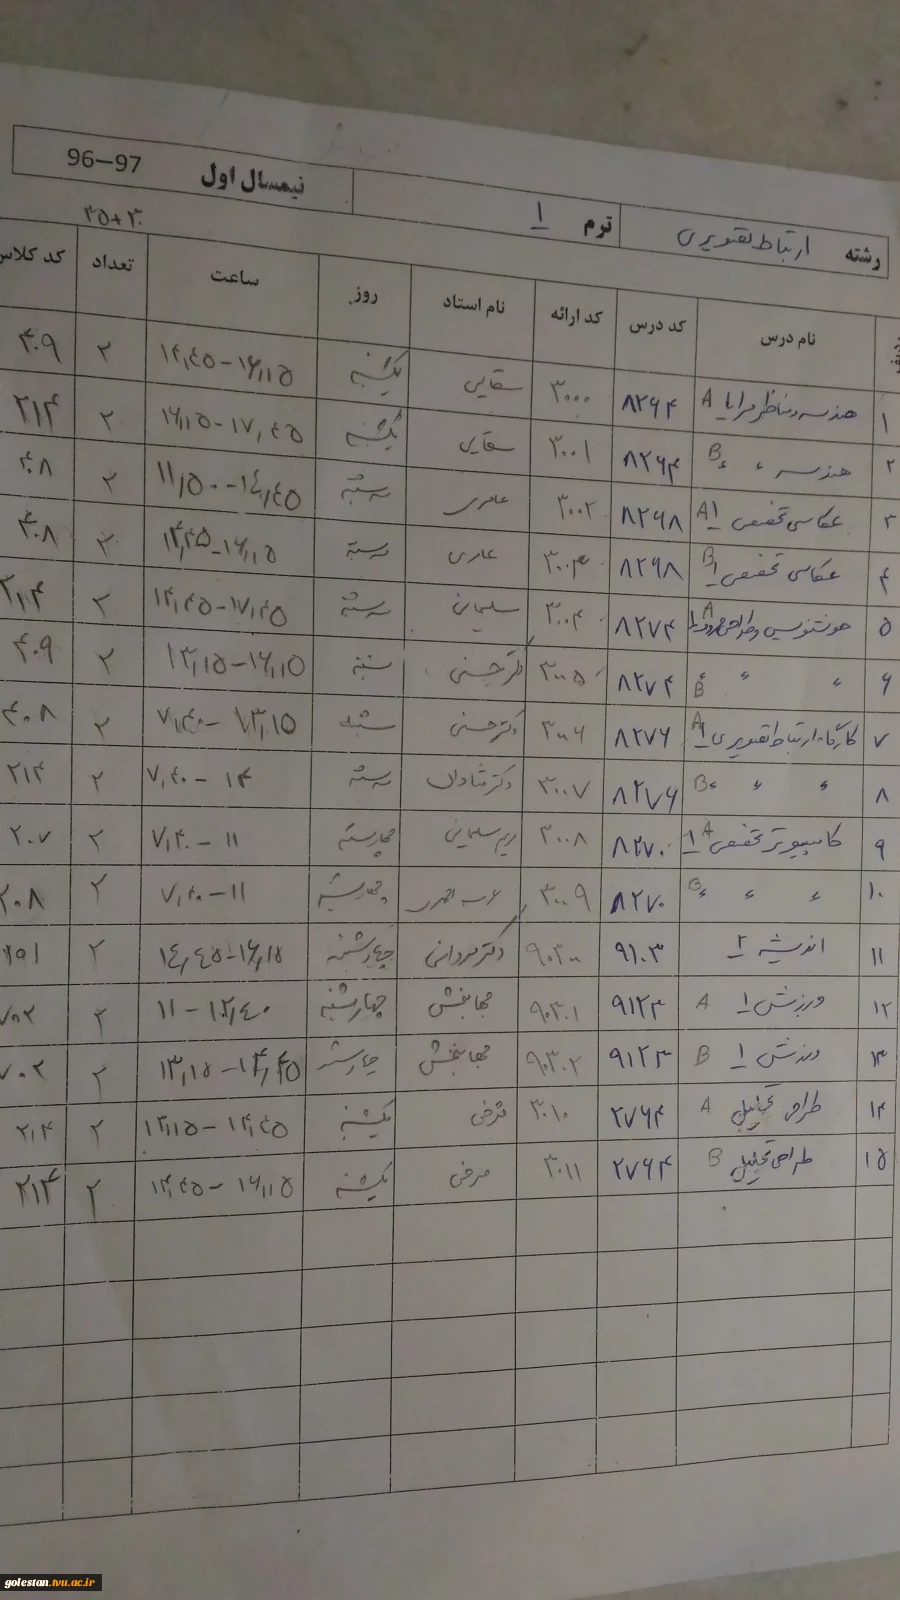 رشته ارتباط تصویری ترم 1 نیمسال اول 96–97
۳۵+۳۰
ردیف نام درس کد درس کد ارائه نام استاد روز ساعت تعداد کد کلاس
۱ هندسه مناظر مرایا A ۸۲۶۴ ۳۰۰۰ سقایی یکشنبه ۱۴,۴۵-۱۶,۱۵ ۲ ۴۰۹
۲ هندسه 〃 〃 B ۸۲۶۴ ۳۰۰۱ سقایی یکشنبه ۱۶,۱۵-۱۷,۴۵ ۲ ۲۱۴
۳ عکاسی تخصصی ۱ A ۸۲۶۸ ۳۰۰۲ عامری سه شنبه ۱۱,۵۰-۱۴,۴۵ ۲ ۴۰۸
۴ عکاسی تخصصی ۱ B ۸۲۶۸ ۳۰۰۳ سه شنبه ۱۴,۴۵-۱۶,۱۵ ۲ ۴۰۸
۵ خوشنویسی و طراحی حروف ۱ A ۸۲۷۴ ۳۰۰۴ سلیمانی سه شنبه ۱۴,۴۵-۱۷,۴۵ ۲ ۲۱۴
۶ 〃 〃 〃 B ۸۲۷۴ ۳۰۰۵ دکتر حسنی شنبه ۱۳,۱۵-۱۶,۱۵ ۲ ۴۰۹
۷ کارگاه ارتباط تصویری ۱ A ۸۲۷۶ ۳۰۰۶ دکتر حسنی شنبه ۷,۴۰-۱۳,۱۵ ۲ ۴۰۸
۸ 〃 〃 〃 B ۸۲۷۶ ۳۰۰۷ دکتر شادان سه شنبه ۷,۴۰-۱۴ ۲ ۲۱۴
۹ کامپیوتر تخصصی ۱ A ۸۲۷۰ ۳۰۰۸ سلیمانی چهارشنبه ۷,۴۰-۱۱ ۲ ۲۰۷
۱۰ 〃 〃 〃 B ۸۲۷۰ ۳۰۰۹ چهارشنبه ۷,۴۰-۱۱ ۲ ۲۰۸
۱۱ اندیشه ۲ ۹۱۰۳ ۹۰۳۰۰ دکتر مردانی چهارشنبه ۱۴,۴۵-۱۶,۱۵ ۲ ۲۵۱
۱۲ ورزش ۱ A ۹۱۲۳ ۹۰۳۰۱ جهانبخش چهارشنبه ۱۱-۱۲,۴۰ ۲ ۷۰۲
۱۳ ورزش ۱ B ۹۱۲۳ ۹۰۳۰۲ جهانبخش چهارشنبه ۱۳,۱۵-۱۴,۴۵ ۲ ۷۰۲
۱۴ طراحی تحلیلی A ۲۷۶۴ ۳۰۱۰ یکشنبه ۱۳,۱۵-۱۴,۴۵ ۲ ۲۱۴
۱۵ طراحی تحلیلی B ۲۷۶۴ ۳۰۱۱ یکشنبه ۱۴,۴۵-۱۶,۱۵ ۲ ۲۱۴
golestan.tvu.ac.ir